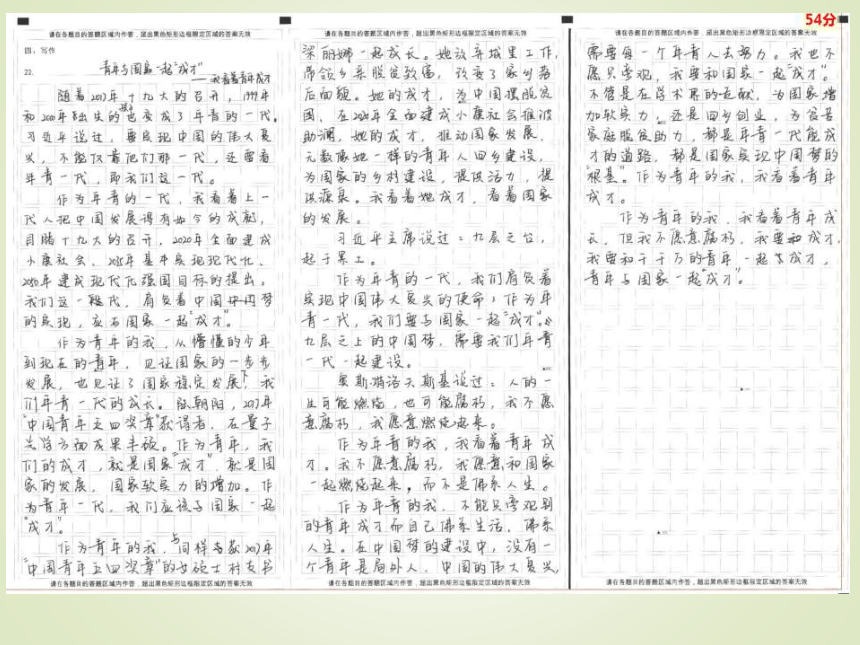 54分
请在各题目的答题区域内作答，超出黑色矩形边框限定区域的答案无效
四、写作
22.
青年与国家一起“成才”
——我看着青年成才
随着2017年十九大的召开，1999年
和2000年出生的也变成了年青的一代。
习近平说过，要实现中国的伟大复
兴，不能仅靠他们那一代，还要看
年青一代，即我们这一代。
作为年青的一代，我看着上一
代人把中国发展得有如今的成就，
目睹十九大的召开，2020年全面建成
小康社会、2035年基本实现现代化、
2050年建成现代化强国目标的提出。
我们这一代，肩负着中国梦
的实现，应与国家一起“成才”。
作为青年的我，从懵懂的少年
到现在的青年，见证国家的一步步
发展，也见证了国家稳定发展下我
们年青一代的成长。陈朝阳，2017年
“中国青年五四奖章”获得者，在量子
光学方面成果丰硕。作为青年，我
们的成才，就是国家“成才”，就是国
家的发展，国家软实力的增加。作
为青年一代，我们应该与国家一起
“成才”。
作为青年的我，同样与获2017年
“中国青年五四奖章”的女硕士村支书
请在各题目的答题区域内作答，超出黑色矩形边框限定区域的答案无效
请在各题目的答题区域内作答，超出黑色矩形边框限定区域的答案无效
梁丽娜一起成长。她放弃城里工作，
带领乡亲脱贫致富，改变了家乡落
后面貌。她的成才，为中国摆脱贫
困、在2020年全面建成小康社会推波
助澜，她的成才，推动国家发展。
无数像她一样的青年人回乡建设，
为国家的乡村建设，提供活力，提
供源泉。我看着她成才，看着国家
的发展。
习近平主席说过：九层之台，
起于累土。
作为年青的一代，我们肩负着
实现中国伟大复兴的使命；作为年
青一代，我们要与国家一起“成才”。
九层之上的中国梦，需要我们年青
一代一起建设。
奥斯特洛夫斯基说过：人的一
生可能燃烧，也可能腐朽，我不愿
意腐朽，我愿意燃烧起来。
作为年青的我，我看着青年成
才。我不愿意腐朽，我愿意和国家
一起燃烧起来。而不是佛系人生。
作为年青的我，不能只旁观别
的青年成才而自己佛系生活，佛系
人生。在中国梦的建设中，没有一
个青年是局外人，中国的伟大复兴，
请在各题目的答题区域内作答，超出黑色矩形边框限定区域的答案无效
请在各题目的答题区域内作答，超出黑色矩形边框限定区域的答案无效
需要每一个年青人去努力。我也不
愿只旁观，我要和国家一起“成才”。
不管是在学术界的贡献，为国家增
加软实力，还是回乡创业，为贫苦
家庭脱贫助力，都是年青一代能成
才的道路，都是国家实现中国梦的
“根基”。作为青年的我，我看着青年
成才。
作为青年的我，我看着青年成
长，但我不愿意腐朽，我要成才，
我要和千千万的青年一起成才，
青年与国家一起“成才”。
请在各题目的答题区域内作答，超出黑色矩形边框限定区域的答案无效